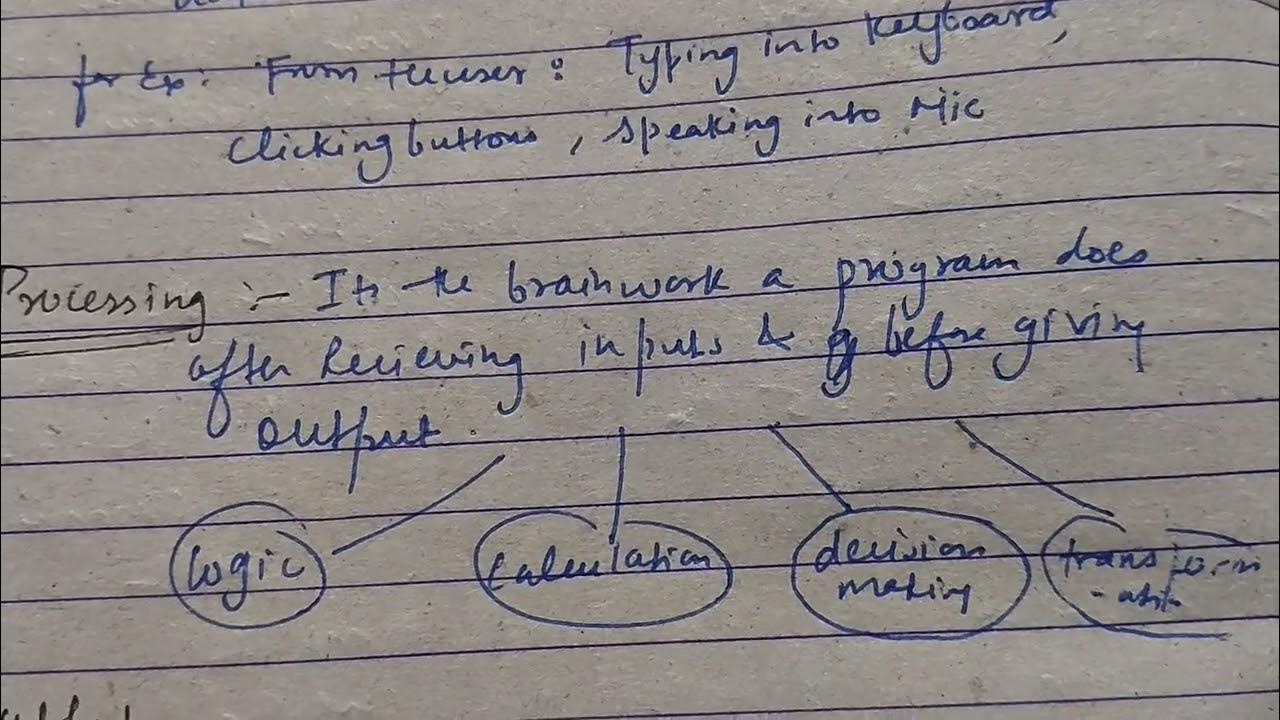 Ex: From the user: Typing into Keyboard,
clicking buttons, speaking into Mic
Processing :- Its the brainwork a program does
after recieving inputs & before giving
output.
logic
calculation
decision
making
transform